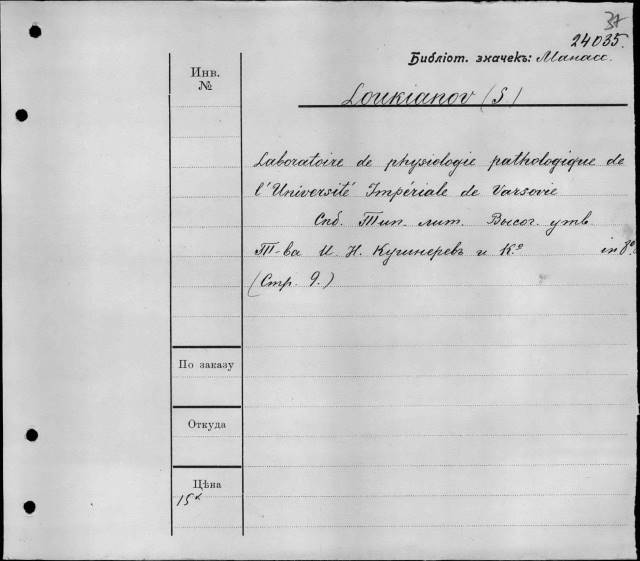 37
24035.
Библіот. значекъ: Манасс.
Инв.
№
Loukianov (S)
Laboratoire de physiologie pathologique de
l'Université Impériale de Varsovie
Спб. Тип. лит. Высоч. утв
Т-ва И. Н. Кушнеревъ и Ко in 8°.
(Стр. 9.)
По заказу
Откуда
Цѣна
15к